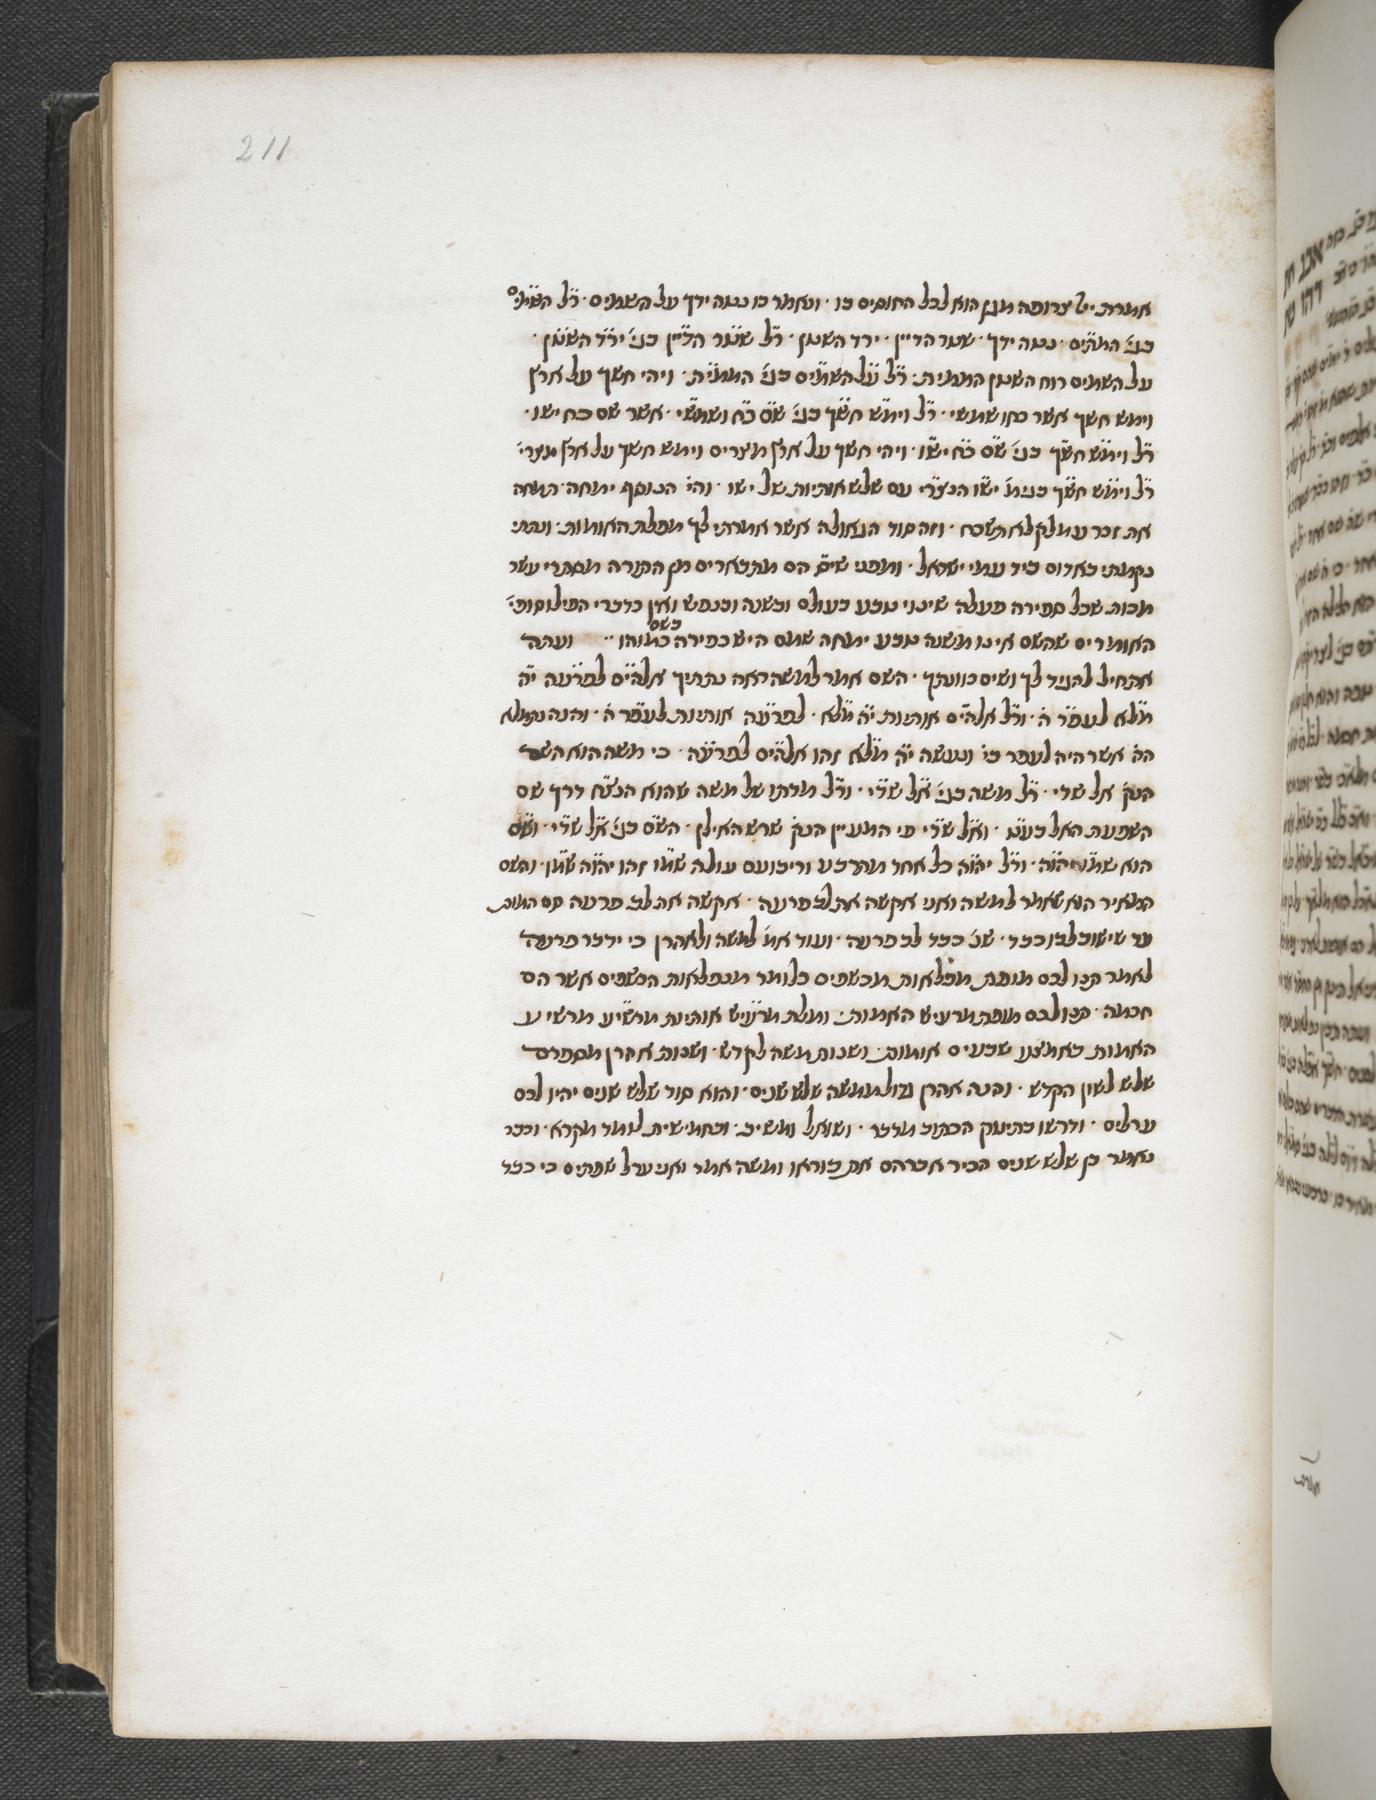 211
אמרת יי׳ צרופה מגן הוא לכל החוסים בו · ונאמר בו נטה ידך על השמים · ר״ל השמי׳
כגי׳ המתים · נטה ידך · שטר הדיין · ירד השטן · ר״ל שטר הדיין כגי׳ ירד השטן ·
על השמים רוח השטן הממית · ר״ל על השמים כגי׳ הממית · ויהי חשך על ארץ
וימש חשך אשר כחו שמשי · ר״ל וימש חשך כגי׳ שם כח ושמשי · אשר שם כח ישו ·
ר״ל וימש חשך כגי׳ שם כח ישו · ויהי חשך על ארץ מצרים וימש חשך על ארץ מצרי׳
ר״ל וימש חשך בגימ׳ ישו הנצרי עם שלש אותיות של ישו · והי׳ הנוסף ימחה תמחה
את זכר עמלק לא תשכח · וזה סוד הגאולה אשר אמרתי לך מפלת האומות · ונתתי
נקמתי באדום ביד עמי ישראל · ומפני שי״ם הם מתבארים מן התורה מסתרי עשר
מכות שכל ספירה פעלה שינוי טבע בעולם ובשנה ובנפש ואין כדברי הפילוסופי׳
האומרים שהשם אינו משנה טבע ימחה שמם היש כפירה כמוהו בשם ·· ועתה
אתחיל להגיד לך ושים כוונתך · השם אמר למשה ראה נתתיך אלהים לפרעה י״ה
מלא לעפר ה׳ · ור״ל אלהים אותיות י״ה מלא · לפרעה אותיות לעפר ה׳ · והנה נתמלא
הה׳ אשר היה לעפר בי׳ ונעשה י״ה מלא זהו אלהים לפרעה · כי משה הוא השם
הנק׳ אל שדי · ר״ל משה כגי׳ אל שדי · ור״ל מדתו של משה שהוא הנצח דרך שם
השפעת האל בעט · ואל שדי פי המעיין הנק׳ שרש האילן · השם כגי׳ אל שדי · ושם
הוא שמו יהוה · ור״ל יהוה כל אחד מהרבע וריבועם עולה שמו זהו יהוה שמו · והשם
המאיר הוא שאמר למשה ואני אקשה את לב פרעה · אקשה את לב פרעה קם המות
עד שישוב לבו כבד · שנ׳ כבד לב פרעה · ועוד אמ׳ למשה ולאהרן כי ידבר פרעה
לאמר תנו לכם מופת מפלאות מכשפים כלומר מנפלאות הכשפים אשר הם
חכמה · תנו לכם מופת מרעיש האמות · ומלת מרעיש אותיות מרשיע מרשיע
האמות באמצע שבעים אומות · ושנות משה לקדש · ושנות אהרן מספרם
שלש לשון הקדש · והנה אהרן גדול ממשה שלש שנים · והוא סוד שלש שנים יהיו לכם
ערלים · ודרשו בתינוק הכתוב מדבר · ושואל ומשיב · ובחמישית לומד מקרא · וכבר
נאמר בן שלש שנים הכיר אברהם את בוראו ומשה אמר ואני ערל שפתים כי כבד